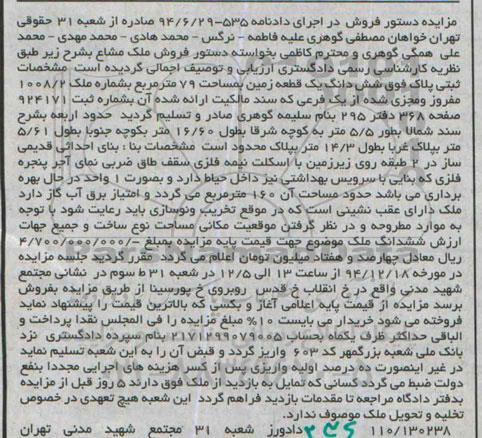 مزایده دستور فروش در اجرای دادنامه ۵۳۵-۹۴/۶/۲۹ صادره از شعبه ۳۱ حقوقی
تهران خواهان مصطفی گوهری علیه فاطمه - نرگس - محمد هادی - محمد مهدی - محمد
علی همگی گوهری و محترم کاظمی بخواسته دستور فروش ملک مشاع بشرح زیر طبق
نظریه کارشناسی رسمی دادگستری ارزیابی و توصیف اجمالی گردیده است مشخصات
ثبتی پلاک فوق شش دانگ یک قطعه زمین بمساحت ۷۹ مترمربع بشماره ملک ۱۰۰۸/۲
مفروز و مجزی شده از یک فرعی که سند مالکیت ارائه شده آن بشماره ثبت ۹۲۴۱۷
صفحه ۳۶۸ دفتر ۲۹۵ بنام سلیمه گوهری صادر و تسلیم گردید حدود اربعه بشرح
سند شمالا بطور ۵/۵ متر به کوچه شرقا بطول ۱۶/۶۰ متر بکوچه جنوبا بطول ۵/۶۱
متر بپلاک غربا بطول ۱۴/۳ متر بپلاک محدود است مشخصات بنا: بنای احداثی قدیمی
ساز در ۲ طبقه روی زیرزمین با اسکلت نیمه فلزی سقف طاق ضربی نمای آجر پنجره
فلزی که بنایی با سرویس بهداشتی نیز داخل حیاط دارد و بصورت ۱ واحد در حال بهره
برداری می باشد حدود مساحت آن ۱۶۰ مترمربع می گردد و امتیاز برق آب گاز دارد
ملک دارای عقب نشینی است که در موقع تخریب ونوسازی باید رعایت شود با توجه
به موارد مطروحه و در نظر گرفتن موقعیت مکانی مساحت نوع ساخت و جمیع جهات
ارزش ششدانگ ملک موضوع جهت قیمت پایه مزایده بمبلغ -/۴/۷۰۰/۰۰۰/۰۰۰
ریال معادل چهارصد و هفتاد میلیون تومان اعلام می گردد مقرر گردید جلسه مزایده
در مورخه ۹۴/۱۲/۱۸ از ساعت ۱۳ الی ۱۲/۵ در شعبه ۳۱ ط سوم در نشانی مجتمع
شهید مدنی واقع در خ انقلاب خ قدس روبروی خ پورسینا از طریق مزایده بفروش
برسد مزایده از قیمت پایه اعلامی آغاز و بکسی که بالاترین قیمت را پیشنهاد نماید
فروخته می شود خریدار می بایست ۱۰% مبلغ مزایده را فی المجلس نقدا پرداخت و
الباقی حداکثر ظرف یکماه بحساب ۲۱۷۱۲۹۹۰۷۹۰۰۵ بنام سپرده دادگستری نزد
بانک ملی شعبه بزرگمهر کد ۶۰۳ واریز گردد و قبض آن را به این شعبه تسلیم نماید
در غیر اینصورت ده درصد اولیه واریزی پس از کسر هزینه های اجرایی مجددا بنفع
دولت ضبط می گردد کسانی که تمایل به بازدید از ملک فوق دارند ۵ روز قبل از مزایده
بدفتر دادگاه مراجعه تا مقدمات بازدید فراهم گردد این شعبه هیچ تعهدی در خصوص
تخلیه و تحویل ملک موصوف ندارد.
۱۱۰/۱۳۰۲۳۸ دادورز شعبه ۳۱ مجتمع شهید مدنی تهران